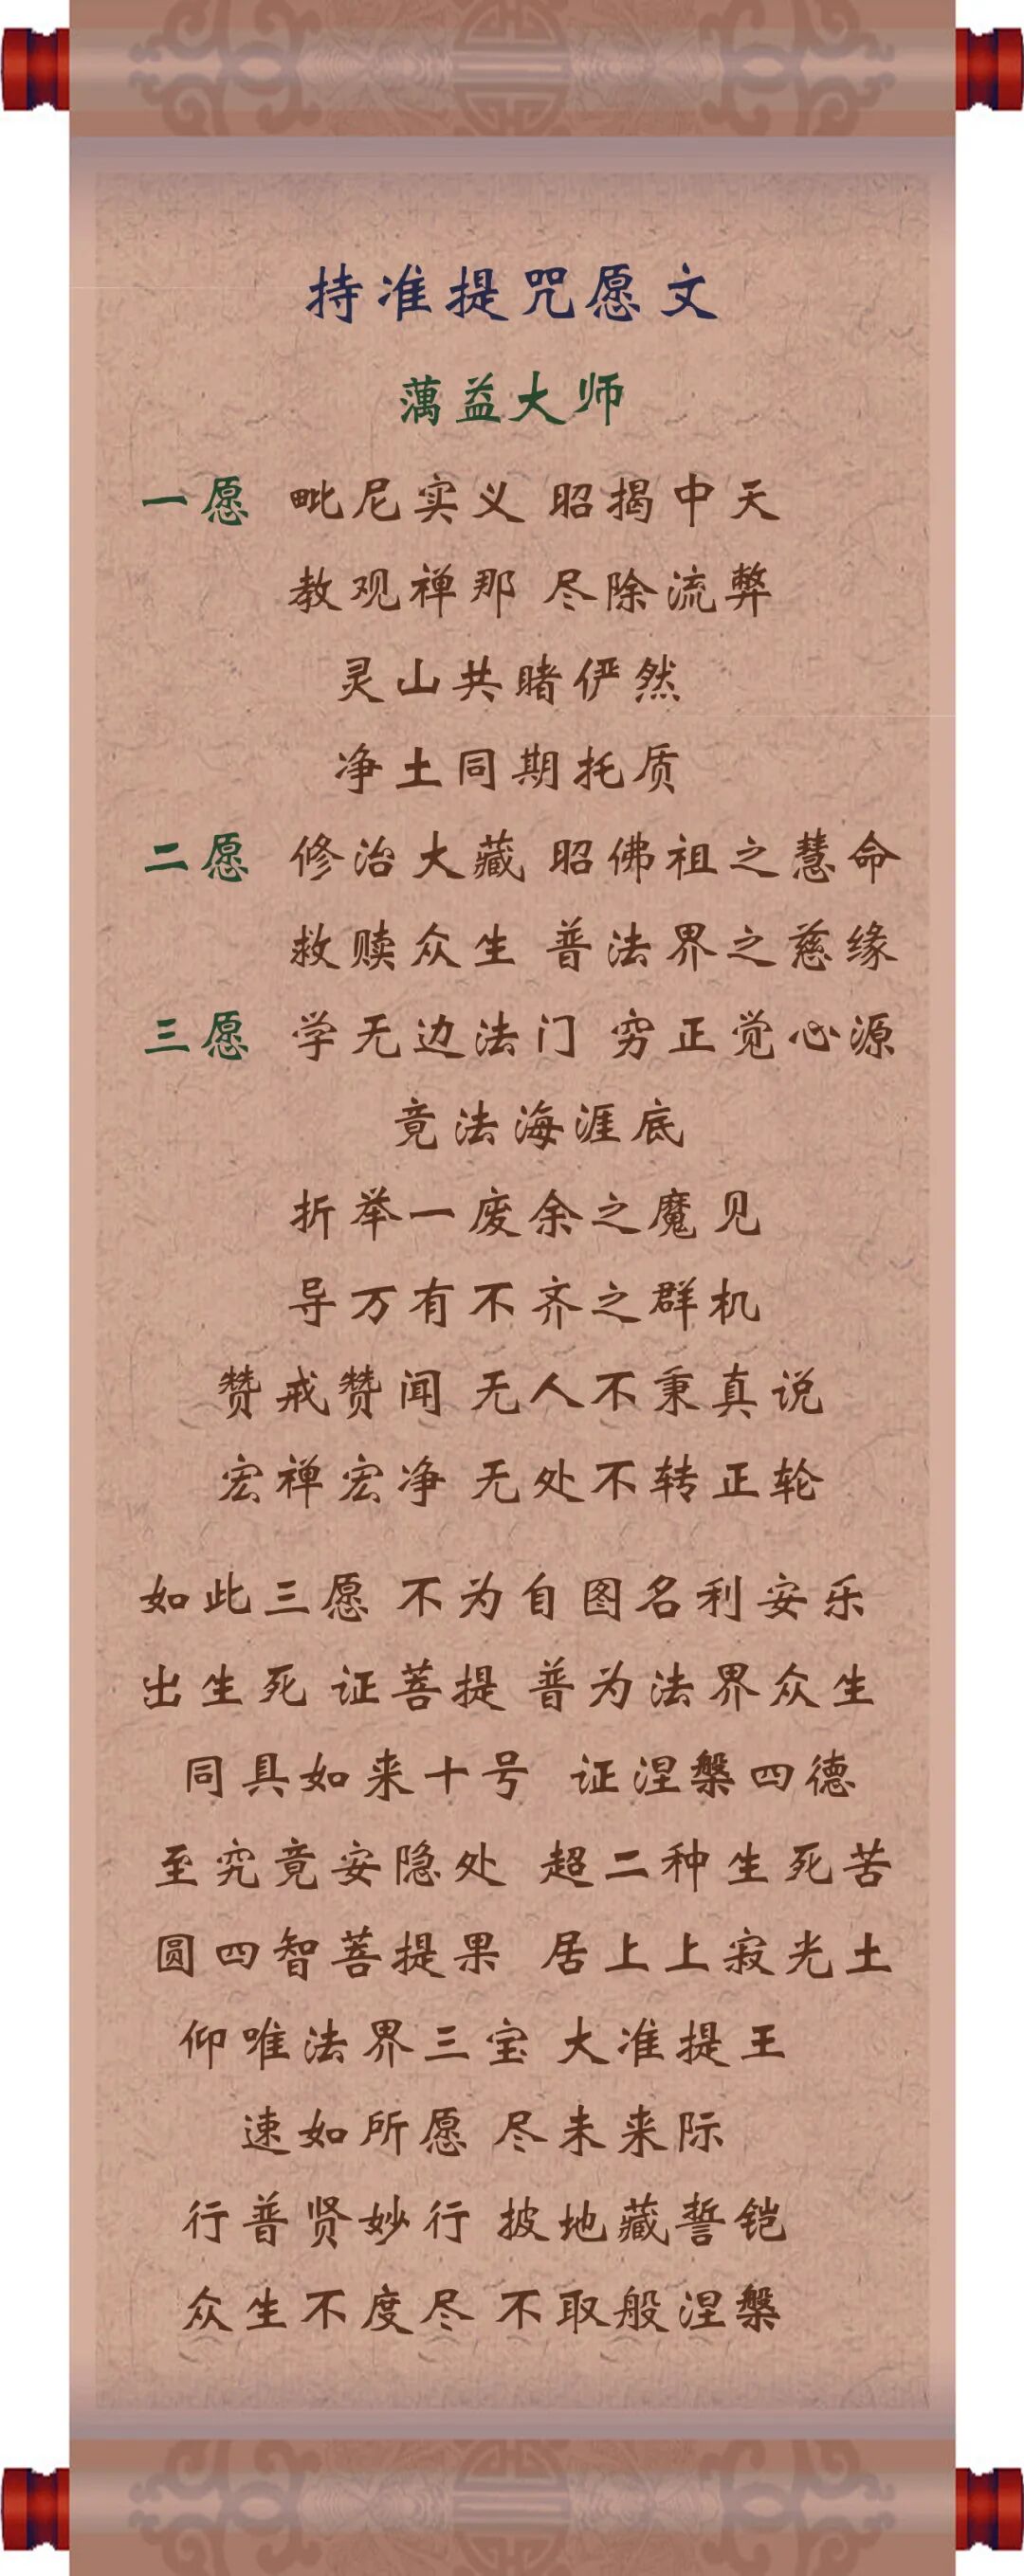 持准提咒愿文
蕅益大师
一愿 毗尼实义 昭揭中天
教观禅那 尽除流弊
灵山共睹俨然
净土同期托质
二愿 修治大藏 昭佛祖之慧命
救赎众生 普法界之慈缘
三愿 学无边法门 穷正觉心源
竟法海涯底
折举一废余之魔见
导万有不齐之群机
赞戒赞闻 无人不秉真说
宏禅宏净 无处不转正轮
如此三愿 不为自图名利安乐
出生死 证菩提 普为法界众生
同具如来十号 证涅槃四德
至究竟安隐处 超二种生死苦
圆四智菩提果 居上上寂光土
仰唯法界三宝 大准提王
速如所愿 尽未来际
行普贤妙行 披地藏誓铠
众生不度尽 不取般涅槃